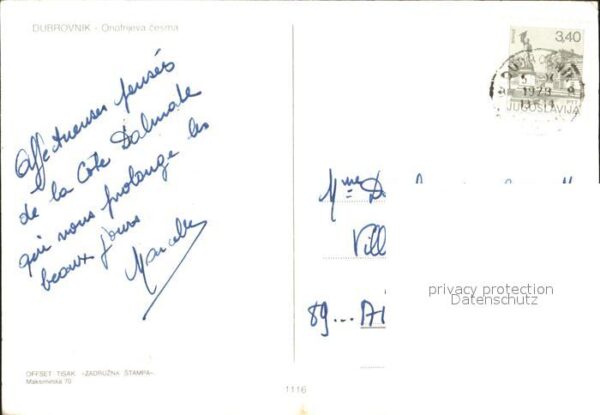 DUBROVNIK - Onofrijeva česma
Affectueuses pensées
de la Côte Dalmate
qui nous prolonge les
beaux jours
Marcelle
3,40
DUBROVNIK
1979
JUGOSLAVIJA
Mme D
Vill
89...
privacy protection
Datenschutz
OFFSET TISAK »ZADRUŽNA ŠTAMPA«
Maksimirska 70
1116